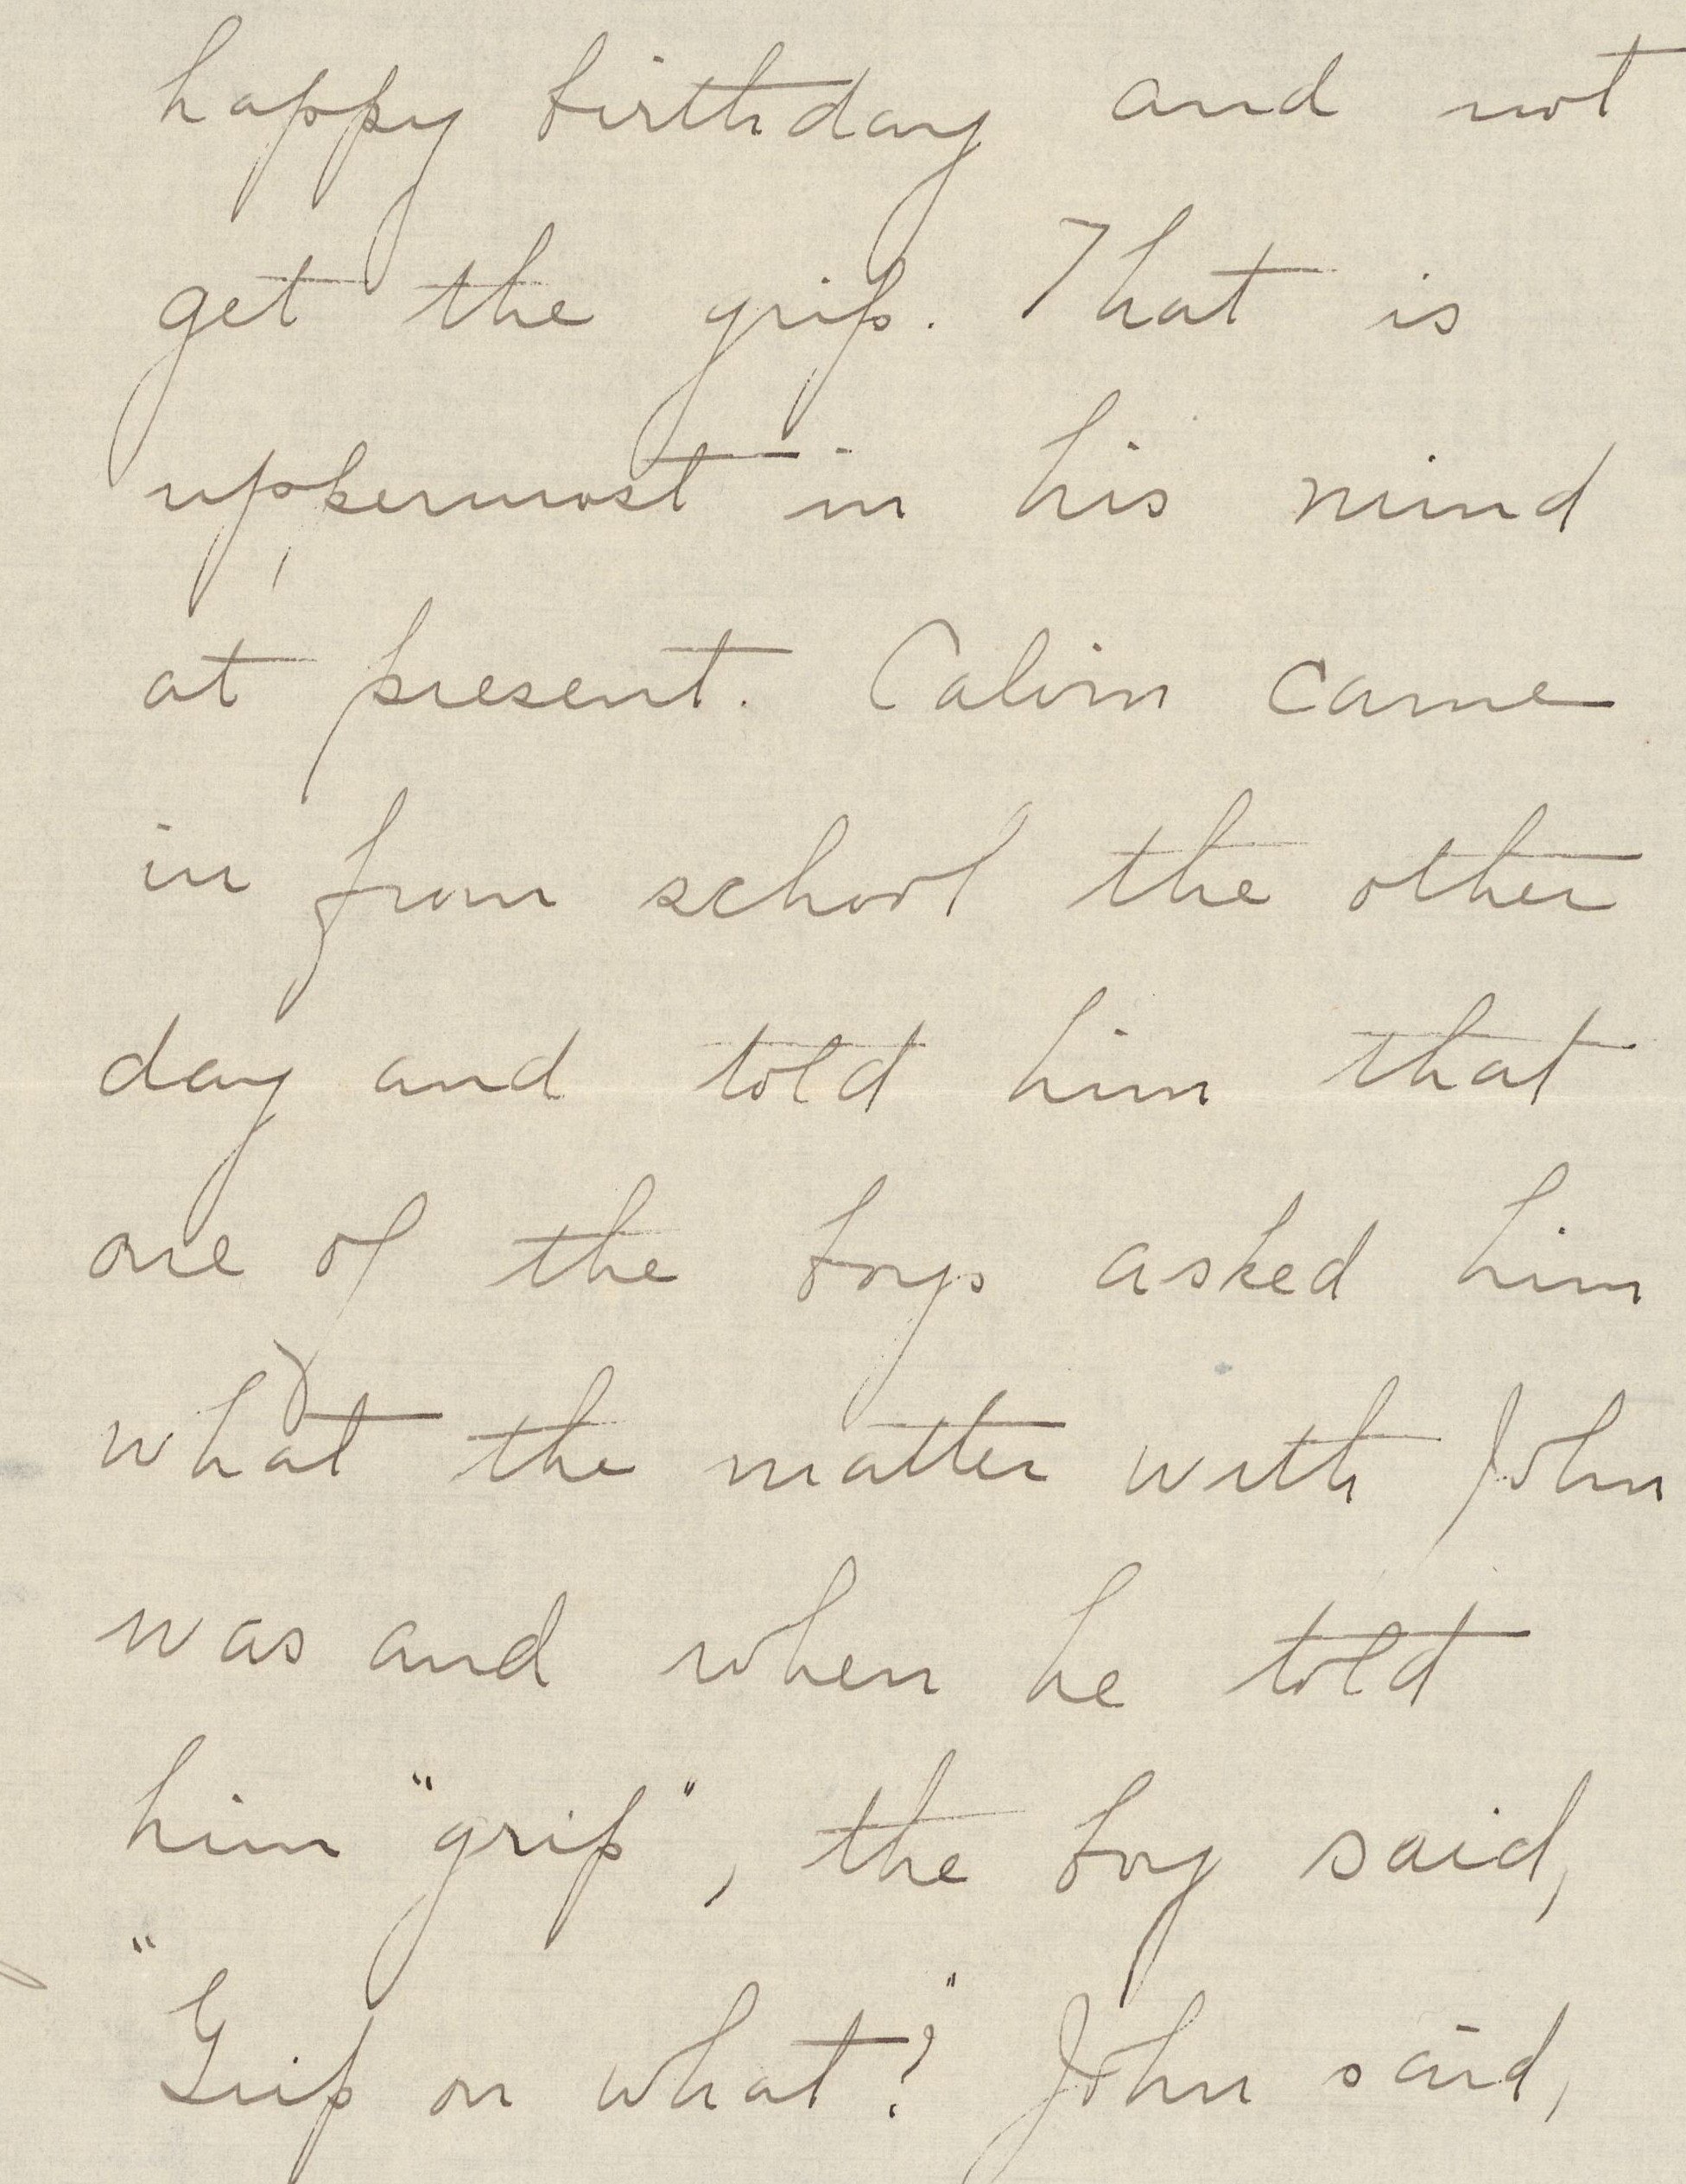 happy birthday and not
get the grip. That is
uppermost in his mind
at present. Calvin came
in from school the other
day and told him that
one of the boys asked him
what the matter with John
was and when he told
him "grip", the boy said,
"Grip on what?" John said,